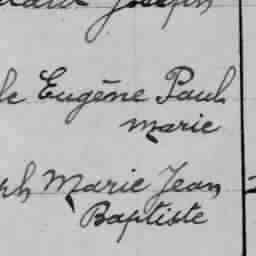 Joseph
le Eugène Paul
Marie
ph Marie Jean
Baptiste